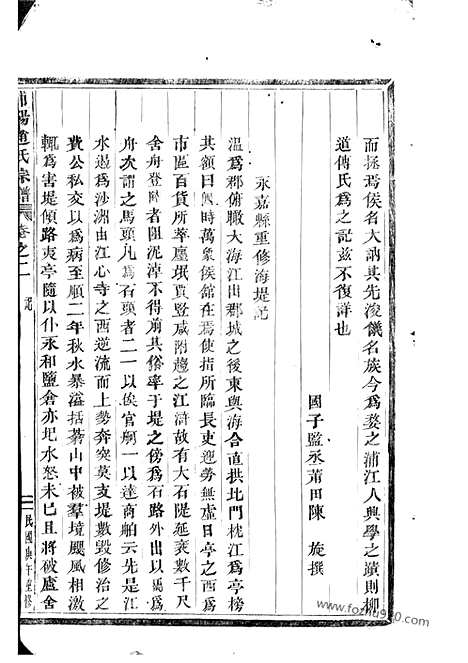 而拯焉侯名大訥其先浚儀名族今為婺之浦江人興學之蹟則柳
道傳氏為之記茲不復詳也
國子監丞莆田陳 旅撰
永嘉縣重修海堤記
溫為郡俯瞰大海江出郡城之後東與海合直拱北門枕江為亭榜
其額曰時萬象侯舘在焉使指所臨長吏迎勞無虛日亭之西為
市區百貨所萃廛氓賈豎咸附趨之江滸故有大石隄延袤數千尺
舍舟登陸者阻泥淖不得前其俗率于堤之傍為石路外出以為
舟次謂之馬頭凡為石頭者二一以俟官舸一以達商舶云先是江
水遏為沙洲由江心寺之西逆流而上勢奔突莫支堤數毀修治之
費公私交以為病至順二年秋水暴溢括蒼山中被羣境颶風相激
輒為害堤傾路夷亭隨以仆永和鹽倉亦圮水怒未已且將破廬舍
浦陽趙氏宗譜
卷之二
記
民國庚午重修
www.fozhu920.com